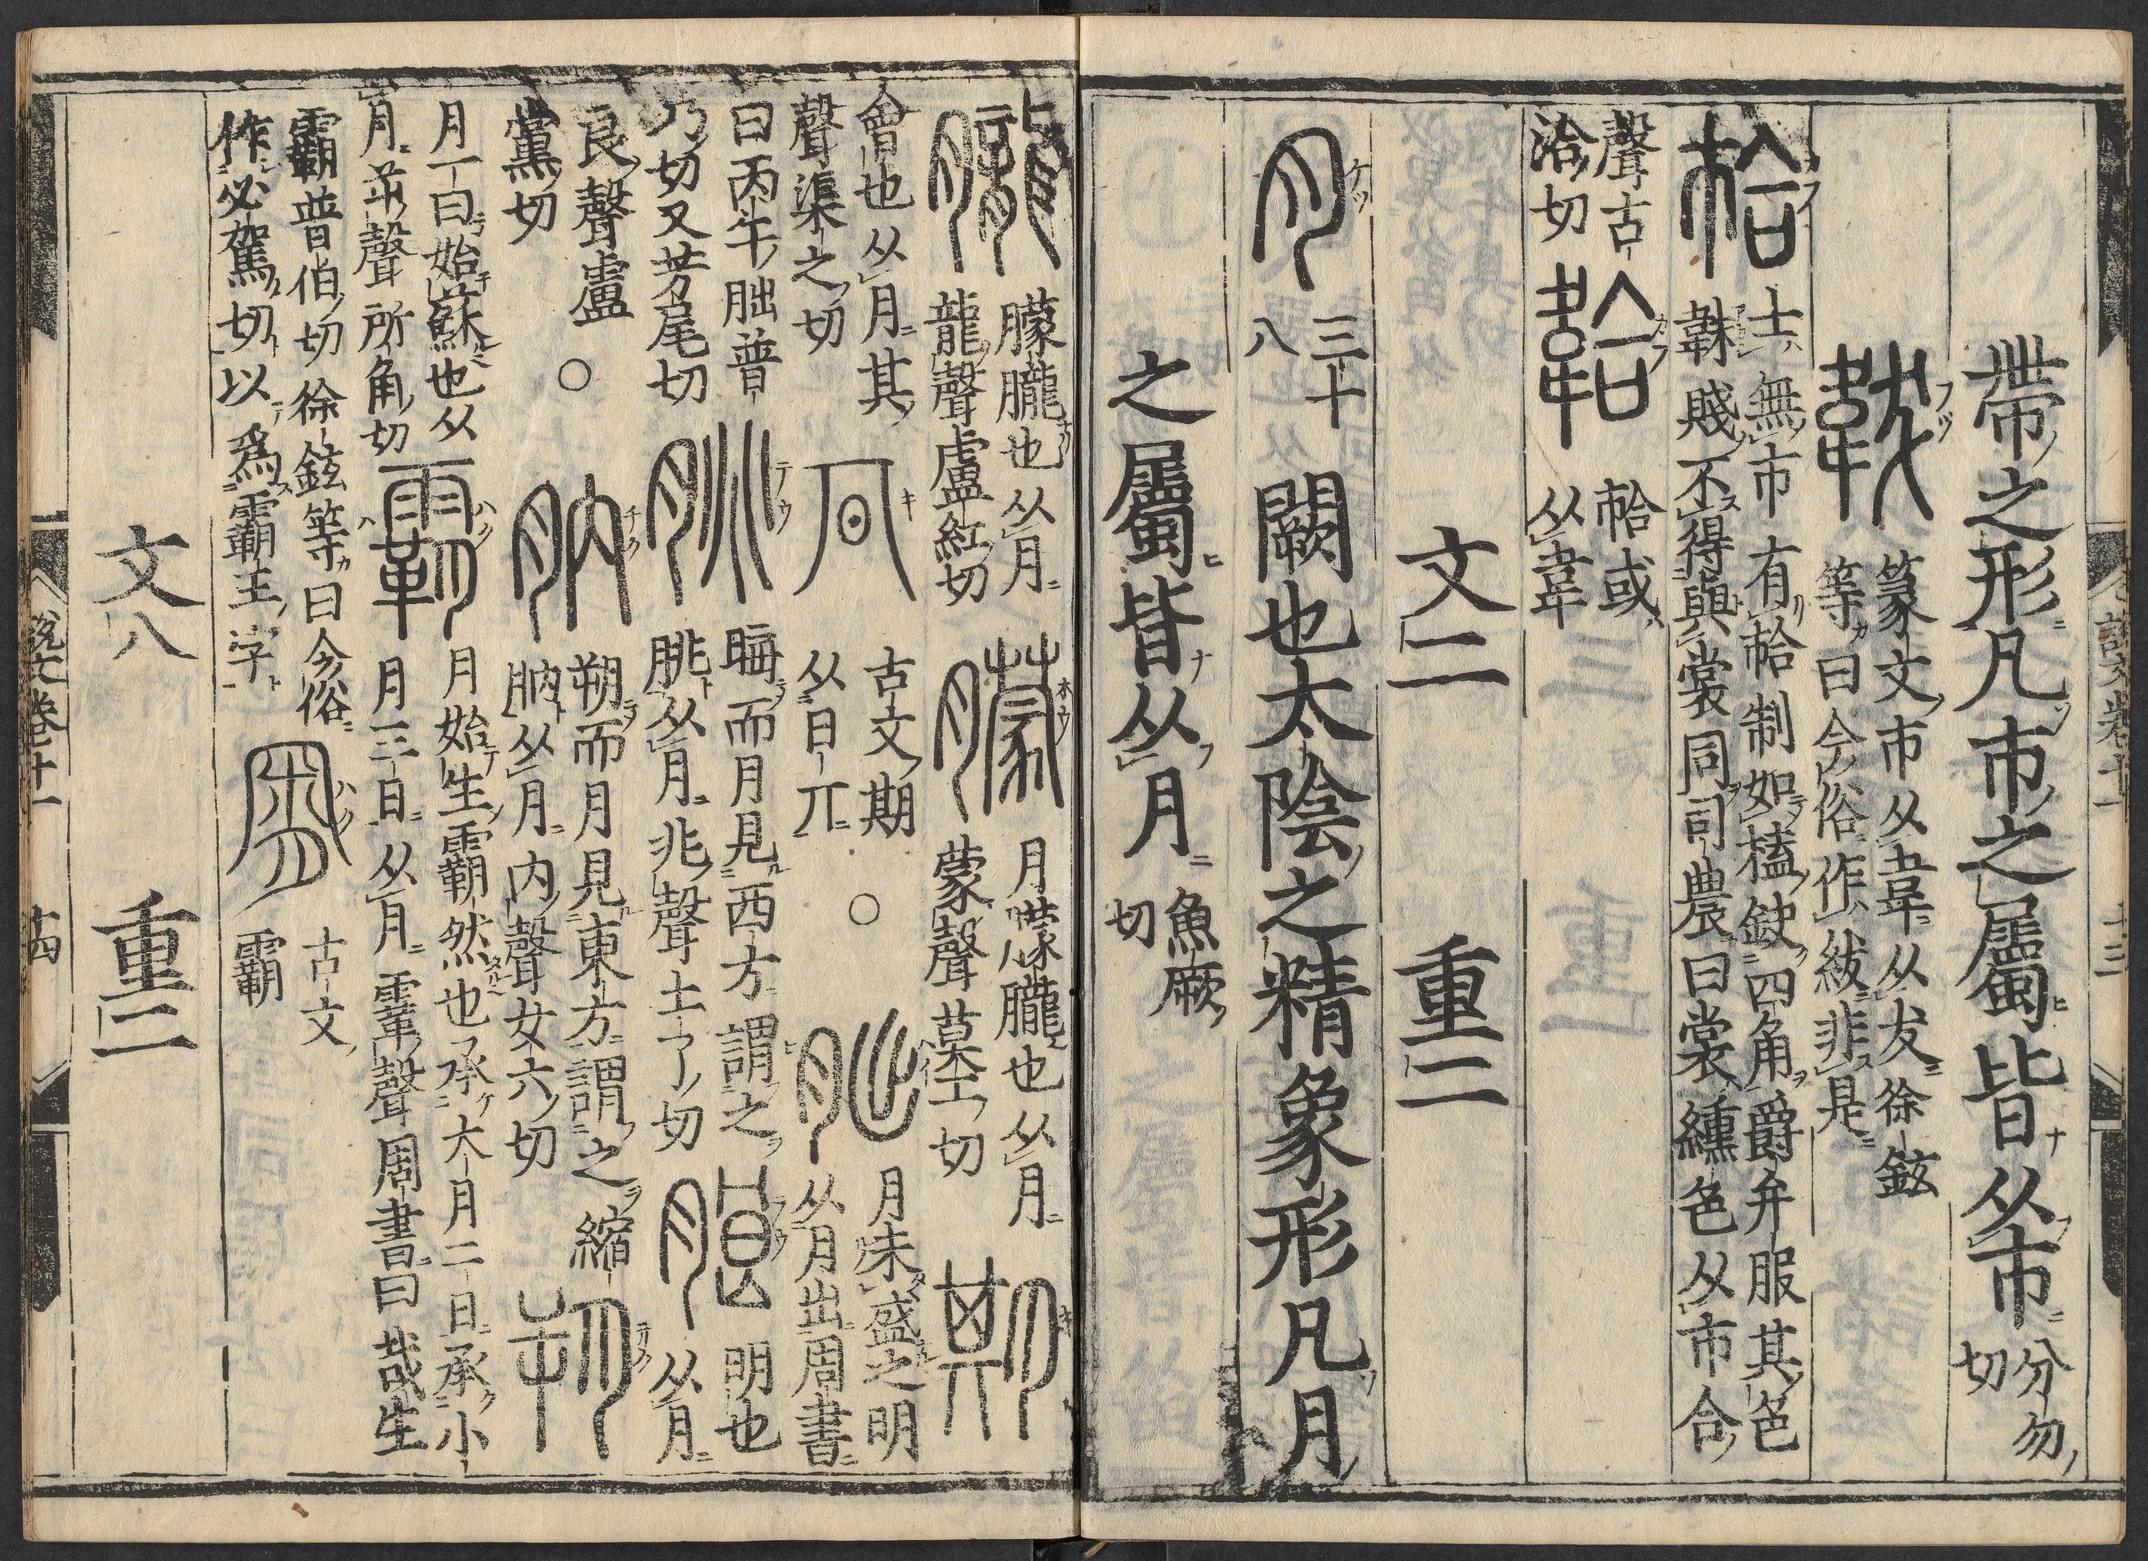 帶之形凡巿之屬皆从巿
分勿
切
韍
篆文巿从韋从犮徐鉉
等曰今俗作紱非是
士無巿有帢制如榼缺四角爵弁服其色
韎賤不得與裳同司農曰裳纁色从巿合
聲古
洽切
韐
帢或
从韋
文二 重二
月
三十
八
闕也太陰之精象形凡月
之屬皆从月
魚厥
切
說文卷十一 十三
朧
朦朧也从月
龍聲盧紅切
朦
月朦朧也从月
蒙聲莫工切
期
會也从月其
聲渠之切
古文期
从日丌 ○
朏
月未盛之明
从月出周書
曰丙午朏普
乃切又芳尾切
朓
晦而月見西方謂之
朓从月兆聲土了切
朖
明也
从月
良聲盧
黨切 ○
肭
朔而月見東方謂之縮
肭从月内聲女六切
朔
月一曰始蘇也从
月屰聲所角切
霸
月始生霸然也承大月二日承小
月三日从月䨣聲周書曰哉生
霸普伯切徐鉉等曰今俗
作必駕切以爲霸王字
古文
霸
文八 重二
說文卷十一 十四